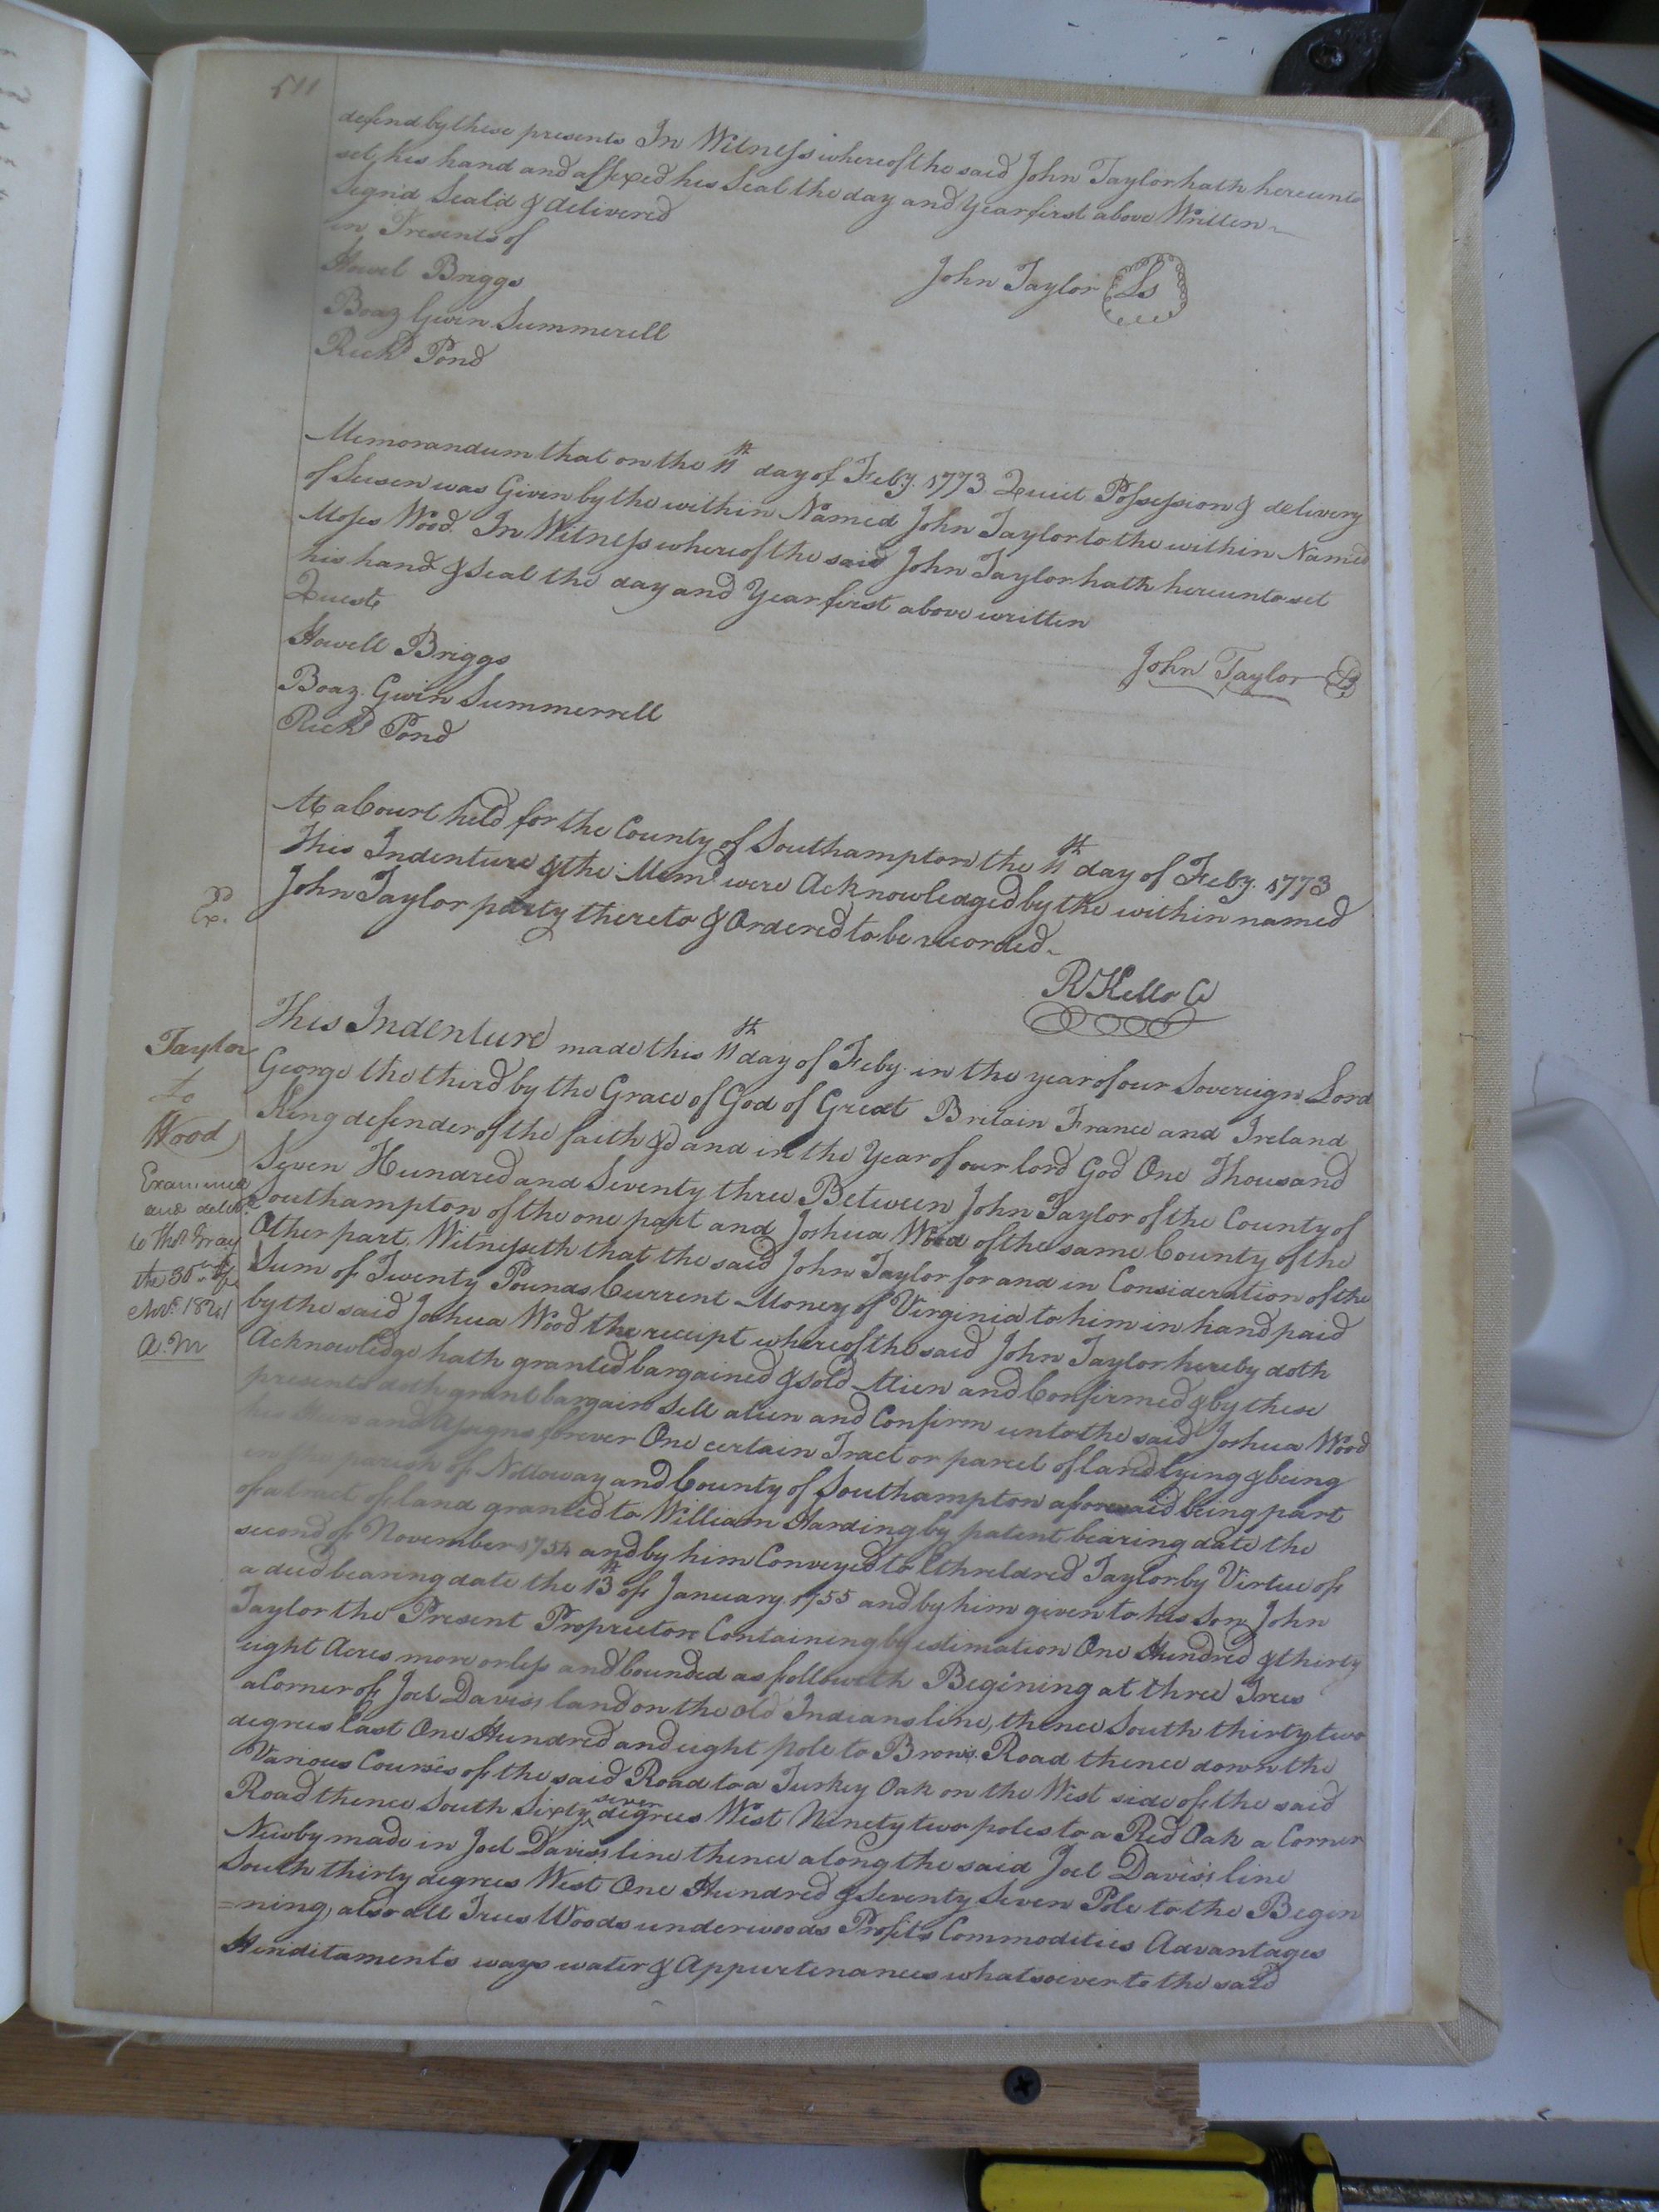 511
defend by these presents In Witness whereof the said John Taylor hath hereunto
set, his hand and affixed his Seal the day and Year first above Written
Sign'd Seal'd & delivered
in Presents of
Howel Briggs
John Taylor Ls
Boaz Gwin Summerell
Richd Pond
Memorandum that on the 11th day of Feby. 1773. Quiit Possession & delivery
of Seisen was Given by the within Named John Taylor to the within Named
Moses Wood. In Witness whereof the said John Taylor hath hereunto set
his hand & Seal the day and Year first above written
Queste
Howell Briggs
John Taylor Ls
Boaz. Gwin Summerrell
Richd Pond
At a Court held for the County of Southampton the 11th day of Feby. 1773
This Indenture & the Memd were Acknowledged by the within named
John Taylor party thereto & Ordered to be recorded
Exd.
R Kello C
Taylor
to
Wood
Examined
and deliv.d
to Thos Gray
the 30th of
Nov. 1821
A. M
This Indenture made this 11th day of Feby. in the year of our Sovereign Lord
George the third by the Grace of God of Great Britain France and Ireland
King defender of the faith & and in the Year of our lord God One Thousand
Seven Hundred and Seventy three Between John Taylor of the County of
Southampton of the one part and Joshua Wood of the same County of the
Other part. Witnesseth that the said John Taylor for and in Consideration of the
Sum of Twenty Pounds Current Money of Virginia to him in hand paid
by the said Joshua Wood the receipt whereof the said John Taylor hereby doth
Acknowledge hath granted bargained & sold Alien and Confirmed & by these
presents doth grant bargain Sell alien and Confirm unto the said Joshua Wood
his Heirs and Assigns forever One certain Tract or parcel of land lying & being
in the parish of Nottoway and County of Southampton aforesaid being part
of a tract of land granted to William Harding by patent bearing date the
second of November 1754 and by him Conveyed to Etheldred Taylor by Virtue of
a deed bearing date the 13th of January 1755 and by him given to his son John
Taylor the Present Proprietore Containing by estimation One Hundred & thirty
eight Acres more or less and bounded as followeth Begining at three Trees
a Corner of Joel Davis's land on the old Indians line, thence South thirty two
degrees East One Hundred and eight pole to Brow's Road thence down the
Various Courses of the said Road to a Turkey Oak on the West side of the said
Road thence South Sixty seven degrees West Ninety two poles to a Red Oak a Corner
Newby made in Joel Davis's line thence along the said Joel Davis's line
South thirty degrees West One Hundred & Seventy Seven Pole to the Begin
=ning, also all Trees Woods underwoods Profits Commodities Advantages
Heriditaments ways water & Appurtenances whatsoever to the said